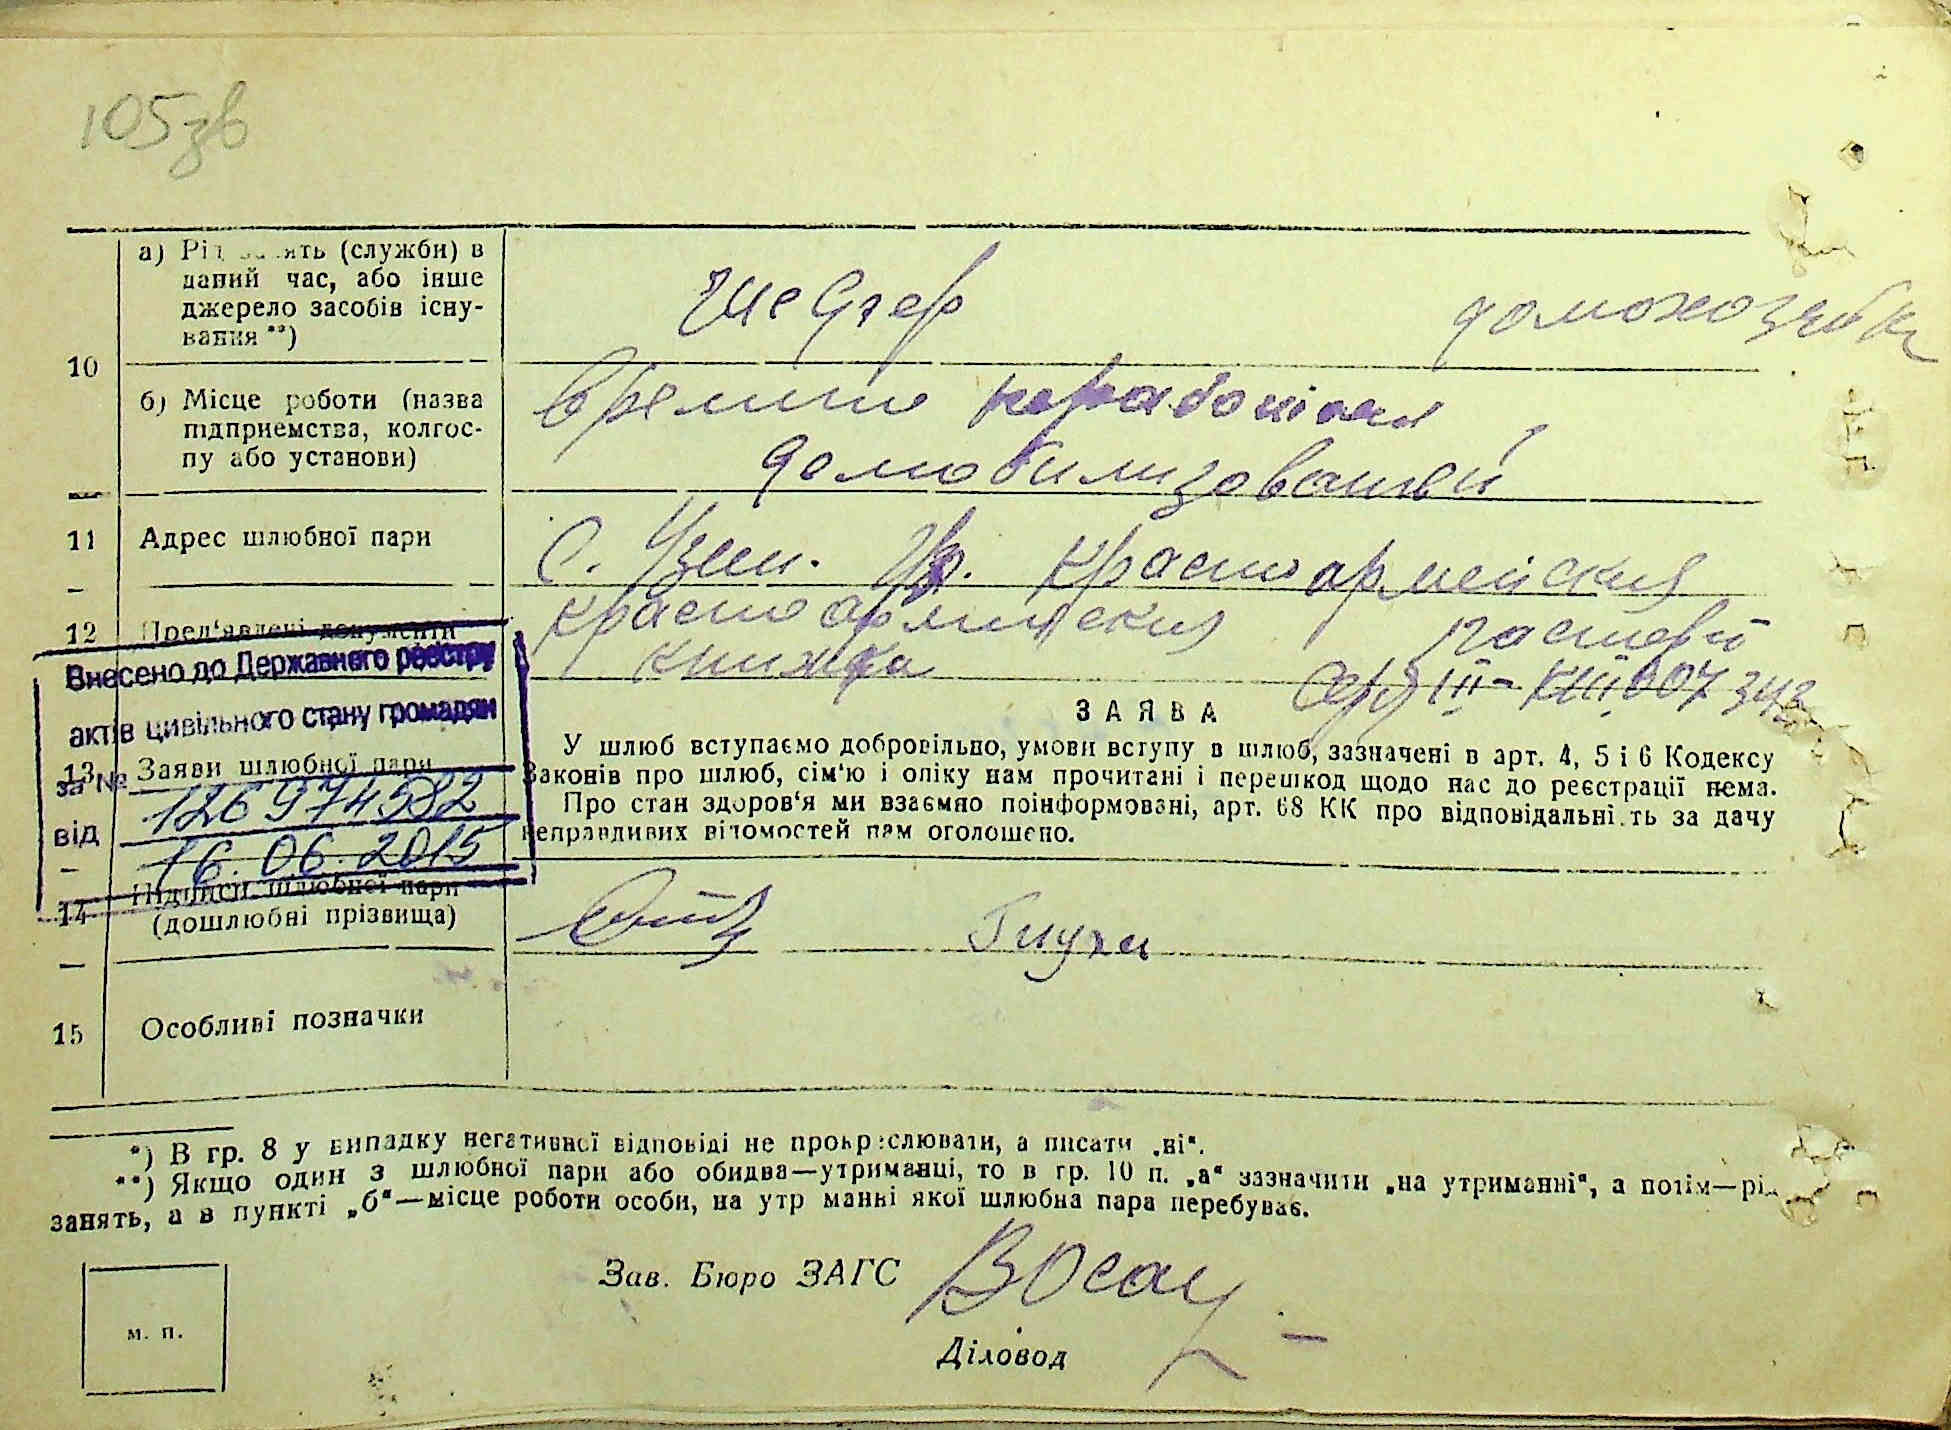 105зв
а) Рід занять (служби) в
даний час, або інше
джерело засобів існу-
вання **)
Шефер
домохозяйка
10
б) Місце роботи (назва
підприємства, колгос-
пу або установи)
времено неработает
демобилизованый
11 Адрес шлюбної пари
С. Узин. Ул. Красноармейская
12 Пред'явлені документи
Красноармейская
книжка
паспорт
III- 007
Внесено до Державного реєстру
актів цивільного стану громадян
за №
126974582
від
16.06.2015
13 Заяви шлюбної пари
ЗАЯВА
У шлюб вступаємо добровільно, умови вступу в шлюб, зазначені в арт. 4, 5 і 6 Кодексу
Законів про шлюб, сім'ю і опіку нам прочитані і перешкод щодо нас до реєстрації нема.
Про стан здоров'я ми взаємно поінформовані, арт. 68 КК про відповідальність за дачу
неправдивих відомостей нам оголошено.
14 Підписи шлюбної пари
(дошлюбні прізвища)
15 Особливі позначки
*) В гр. 8 у випадку негативної відповіді не прокреслювати, а писати „ні“.
**) Якщо один з шлюбної пари або обидва—утриманці, то в гр. 10 п. „а“ зазначити „на утриманні“, а потім—рід
занять, а в пункті „б“—місце роботи особи, на утриманні якої шлюбна пара перебуває.
Зав. Бюро ЗАГС
Діловод
м. п.